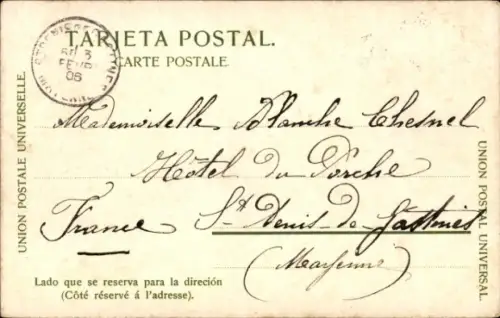 TARJETA POSTAL.
CARTE POSTALE.
FEVR
08
UNION POSTALE UNIVERSELLE.
UNION POSTAL UNIVERSAL
Mademoiselle Blanche Chesnel
Hôtel du Porche
France St Denis-de-Gastines
(Mayenne)
Lado que se reserva para la direción
(Côté réservé á l'adresse).